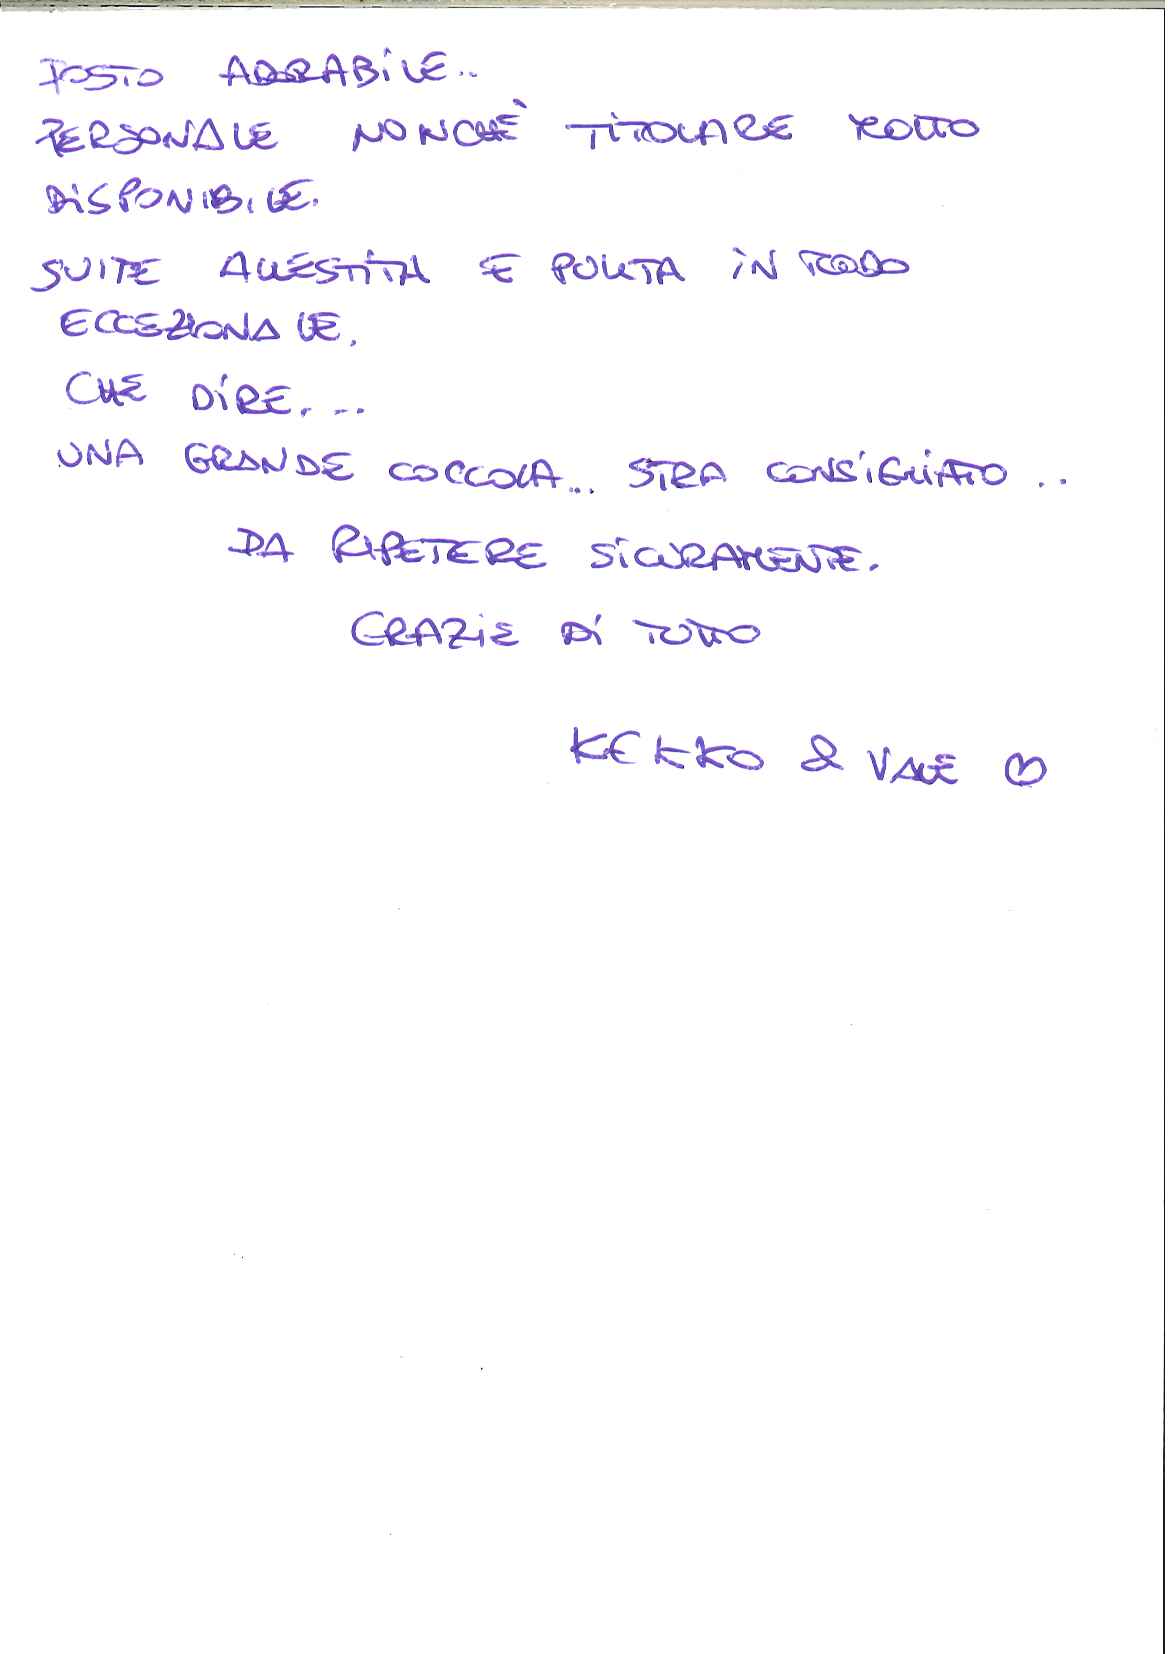 POSTO ADORABILE..
PERSONALE NONCHÈ TITOLARE MOLTO
DISPONIBILE.
SUITE ALLESTITA E PULITA IN MODO
ECCEZIONALE.
CHE DIRE....
UNA GRANDE COCCOLA... STRA CONSIGLIATO..
DA RIPETERE SICURAMENTE.
GRAZIE DI TUTTO
KEKKO & VALE ♡